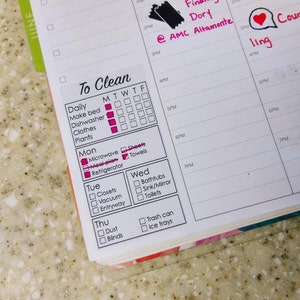 JUNE
Finding
Dory
@ AMC Altamonte
Coun
ling
To Clean
M T W T F
Daily
Make bed
Dishwasher
Clothes
Plants
Mon
Microwave
Sheets
Meal plan
Towels
Refrigerator
Tue
Closets
Vacuum
Entryway
Wed
Bathtubs
Sink/Mirror
Toilets
Thu
Dust
Blinds
Trash can
Ice trays
5PM
6PM
7PM